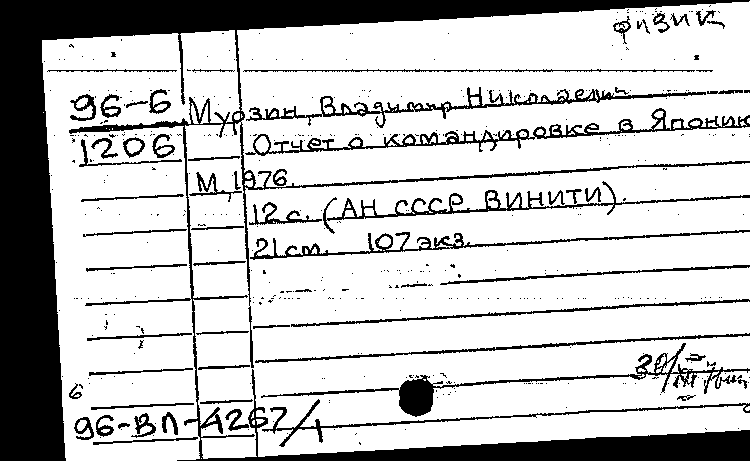 физик
96-6 Мурзин, Владимир Николаевич
1206 Отчет о командировке в Японию
М, 1976.
12 с. (АН СССР. ВИНИТИ).
21 см. 107 экз.
30/
6
96-ВЛ-4267/1